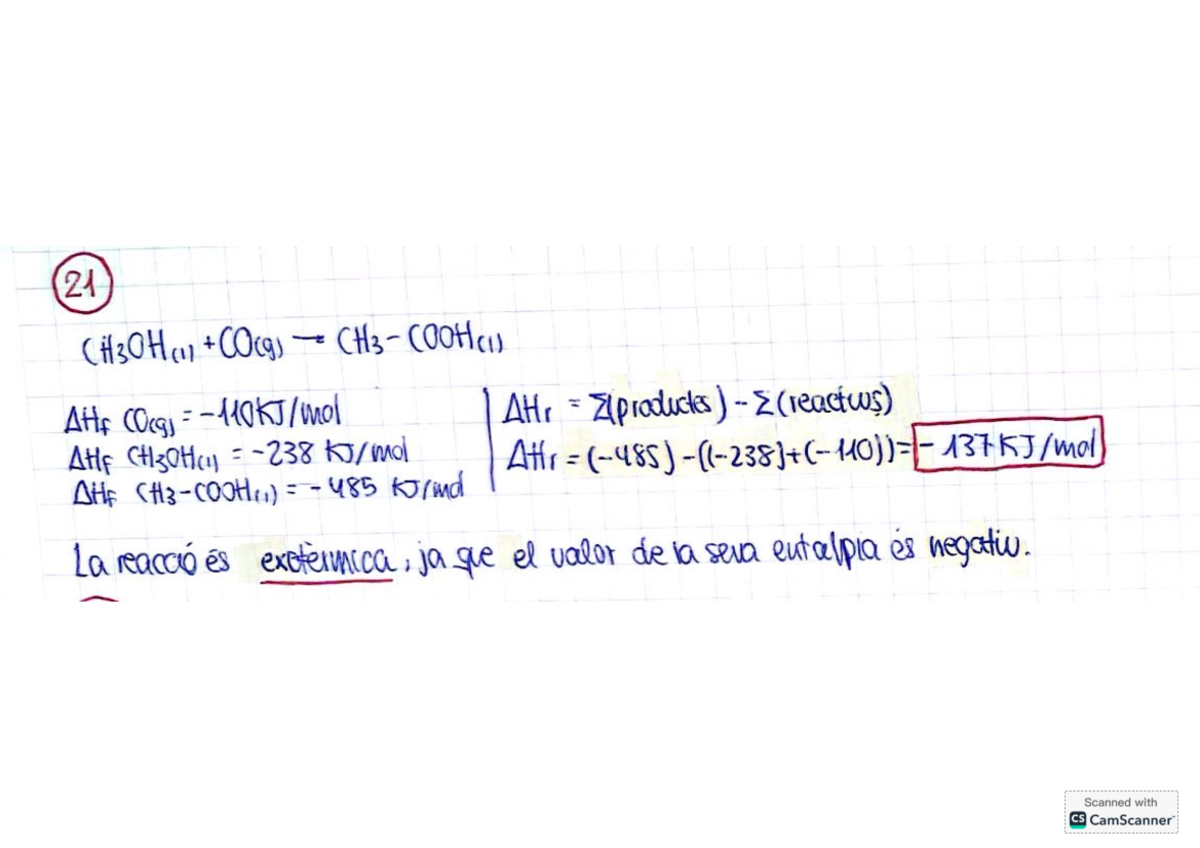 21
CH3OH(l) + CO(g) → CH3-COOH(l)
ΔHf CO(g) = -110KJ/mol
ΔHf CH3OH(l) = -238 KJ/mol
ΔHf CH3-COOH(l) = -485 KJ/mol
ΔHr = Σ(productes) - Σ(reactius)
ΔHr = (-485) - ((-238)+(-110)) = -137KJ/mol
La reacció és exotèrmica, ja que el valor de la seva entalpia és negatiu.
Scanned with
CS CamScanner